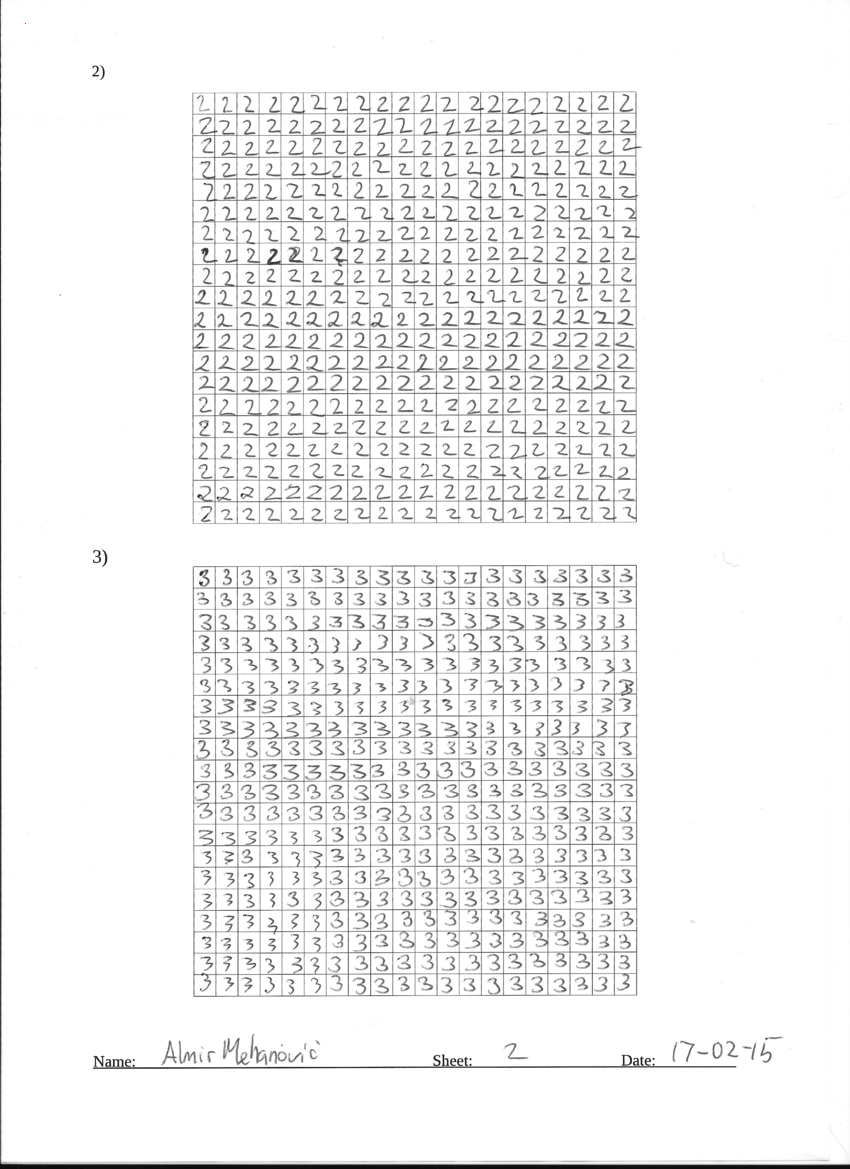 2)
2 2 2 2 2 2 2 2 2 2 2 2 2 2 2 2 2 2 2 2
2 2 2 2 2 2 2 2 2 2 2 2 2 2 2 2 2 2 2 2
2 2 2 2 2 2 2 2 2 2 2 2 2 2 2 2 2 2 2 2
2 2 2 2 2 2 2 2 2 2 2 2 2 2 2 2 2 2 2 2
2 2 2 2 2 2 2 2 2 2 2 2 2 2 2 2 2 2 2 2
2 2 2 2 2 2 2 2 2 2 2 2 2 2 2 2 2 2 2 2
2 2 2 2 2 2 2 2 2 2 2 2 2 2 2 2 2 2 2 2
2 2 2 2 2 2 2 2 2 2 2 2 2 2 2 2 2 2 2 2
2 2 2 2 2 2 2 2 2 2 2 2 2 2 2 2 2 2 2 2
2 2 2 2 2 2 2 2 2 2 2 2 2 2 2 2 2 2 2 2
2 2 2 2 2 2 2 2 2 2 2 2 2 2 2 2 2 2 2 2
2 2 2 2 2 2 2 2 2 2 2 2 2 2 2 2 2 2 2 2
2 2 2 2 2 2 2 2 2 2 2 2 2 2 2 2 2 2 2 2
2 2 2 2 2 2 2 2 2 2 2 2 2 2 2 2 2 2 2 2
2 2 2 2 2 2 2 2 2 2 2 2 2 2 2 2 2 2 2 2
2 2 2 2 2 2 2 2 2 2 2 2 2 2 2 2 2 2 2 2
2 2 2 2 2 2 2 2 2 2 2 2 2 2 2 2 2 2 2 2
2 2 2 2 2 2 2 2 2 2 2 2 2 2 2 2 2 2 2 2
2 2 2 2 2 2 2 2 2 2 2 2 2 2 2 2 2 2 2 2
2 2 2 2 2 2 2 2 2 2 2 2 2 2 2 2 2 2 2 2
3)
3 3 3 3 3 3 3 3 3 3 3 3 3 3 3 3 3 3 3 3
3 3 3 3 3 3 3 3 3 3 3 3 3 3 3 3 3 3 3 3
3 3 3 3 3 3 3 3 3 3 3 3 3 3 3 3 3 3 3 3
3 3 3 3 3 3 3 3 3 3 3 3 3 3 3 3 3 3 3 3
3 3 3 3 3 3 3 3 3 3 3 3 3 3 3 3 3 3 3 3
3 3 3 3 3 3 3 3 3 3 3 3 3 3 3 3 3 3 3 3
3 3 3 3 3 3 3 3 3 3 3 3 3 3 3 3 3 3 3 3
3 3 3 3 3 3 3 3 3 3 3 3 3 3 3 3 3 3 3 3
3 3 3 3 3 3 3 3 3 3 3 3 3 3 3 3 3 3 3 3
3 3 3 3 3 3 3 3 3 3 3 3 3 3 3 3 3 3 3 3
3 3 3 3 3 3 3 3 3 3 3 3 3 3 3 3 3 3 3 3
3 3 3 3 3 3 3 3 3 3 3 3 3 3 3 3 3 3 3 3
3 3 3 3 3 3 3 3 3 3 3 3 3 3 3 3 3 3 3 3
3 3 3 3 3 3 3 3 3 3 3 3 3 3 3 3 3 3 3 3
3 3 3 3 3 3 3 3 3 3 3 3 3 3 3 3 3 3 3 3
3 3 3 3 3 3 3 3 3 3 3 3 3 3 3 3 3 3 3 3
3 3 3 3 3 3 3 3 3 3 3 3 3 3 3 3 3 3 3 3
3 3 3 3 3 3 3 3 3 3 3 3 3 3 3 3 3 3 3 3
3 3 3 3 3 3 3 3 3 3 3 3 3 3 3 3 3 3 3 3
3 3 3 3 3 3 3 3 3 3 3 3 3 3 3 3 3 3 3 3
Name: Almir Mehanović Sheet: 2 Date: 17-02-15